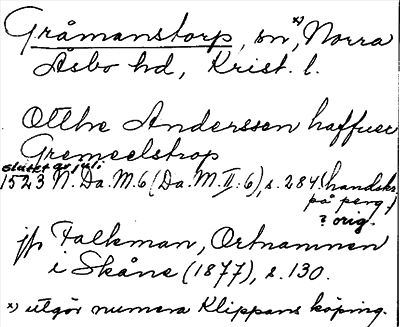 Gråmanstorp, sn *), Norra
Åsbo hd, Krist. l.
Otthe Anderssen haffuer
Gremeelstrop
slutet av juli
1523 N. Da. M. 6 (Da. M. II. 6), s. 284. (handskr.
på perg.)
? orig.
jfr Falkman, Ortnamnen
i Skåne (1877), s. 130.
*) utgör numera Klippans köping.